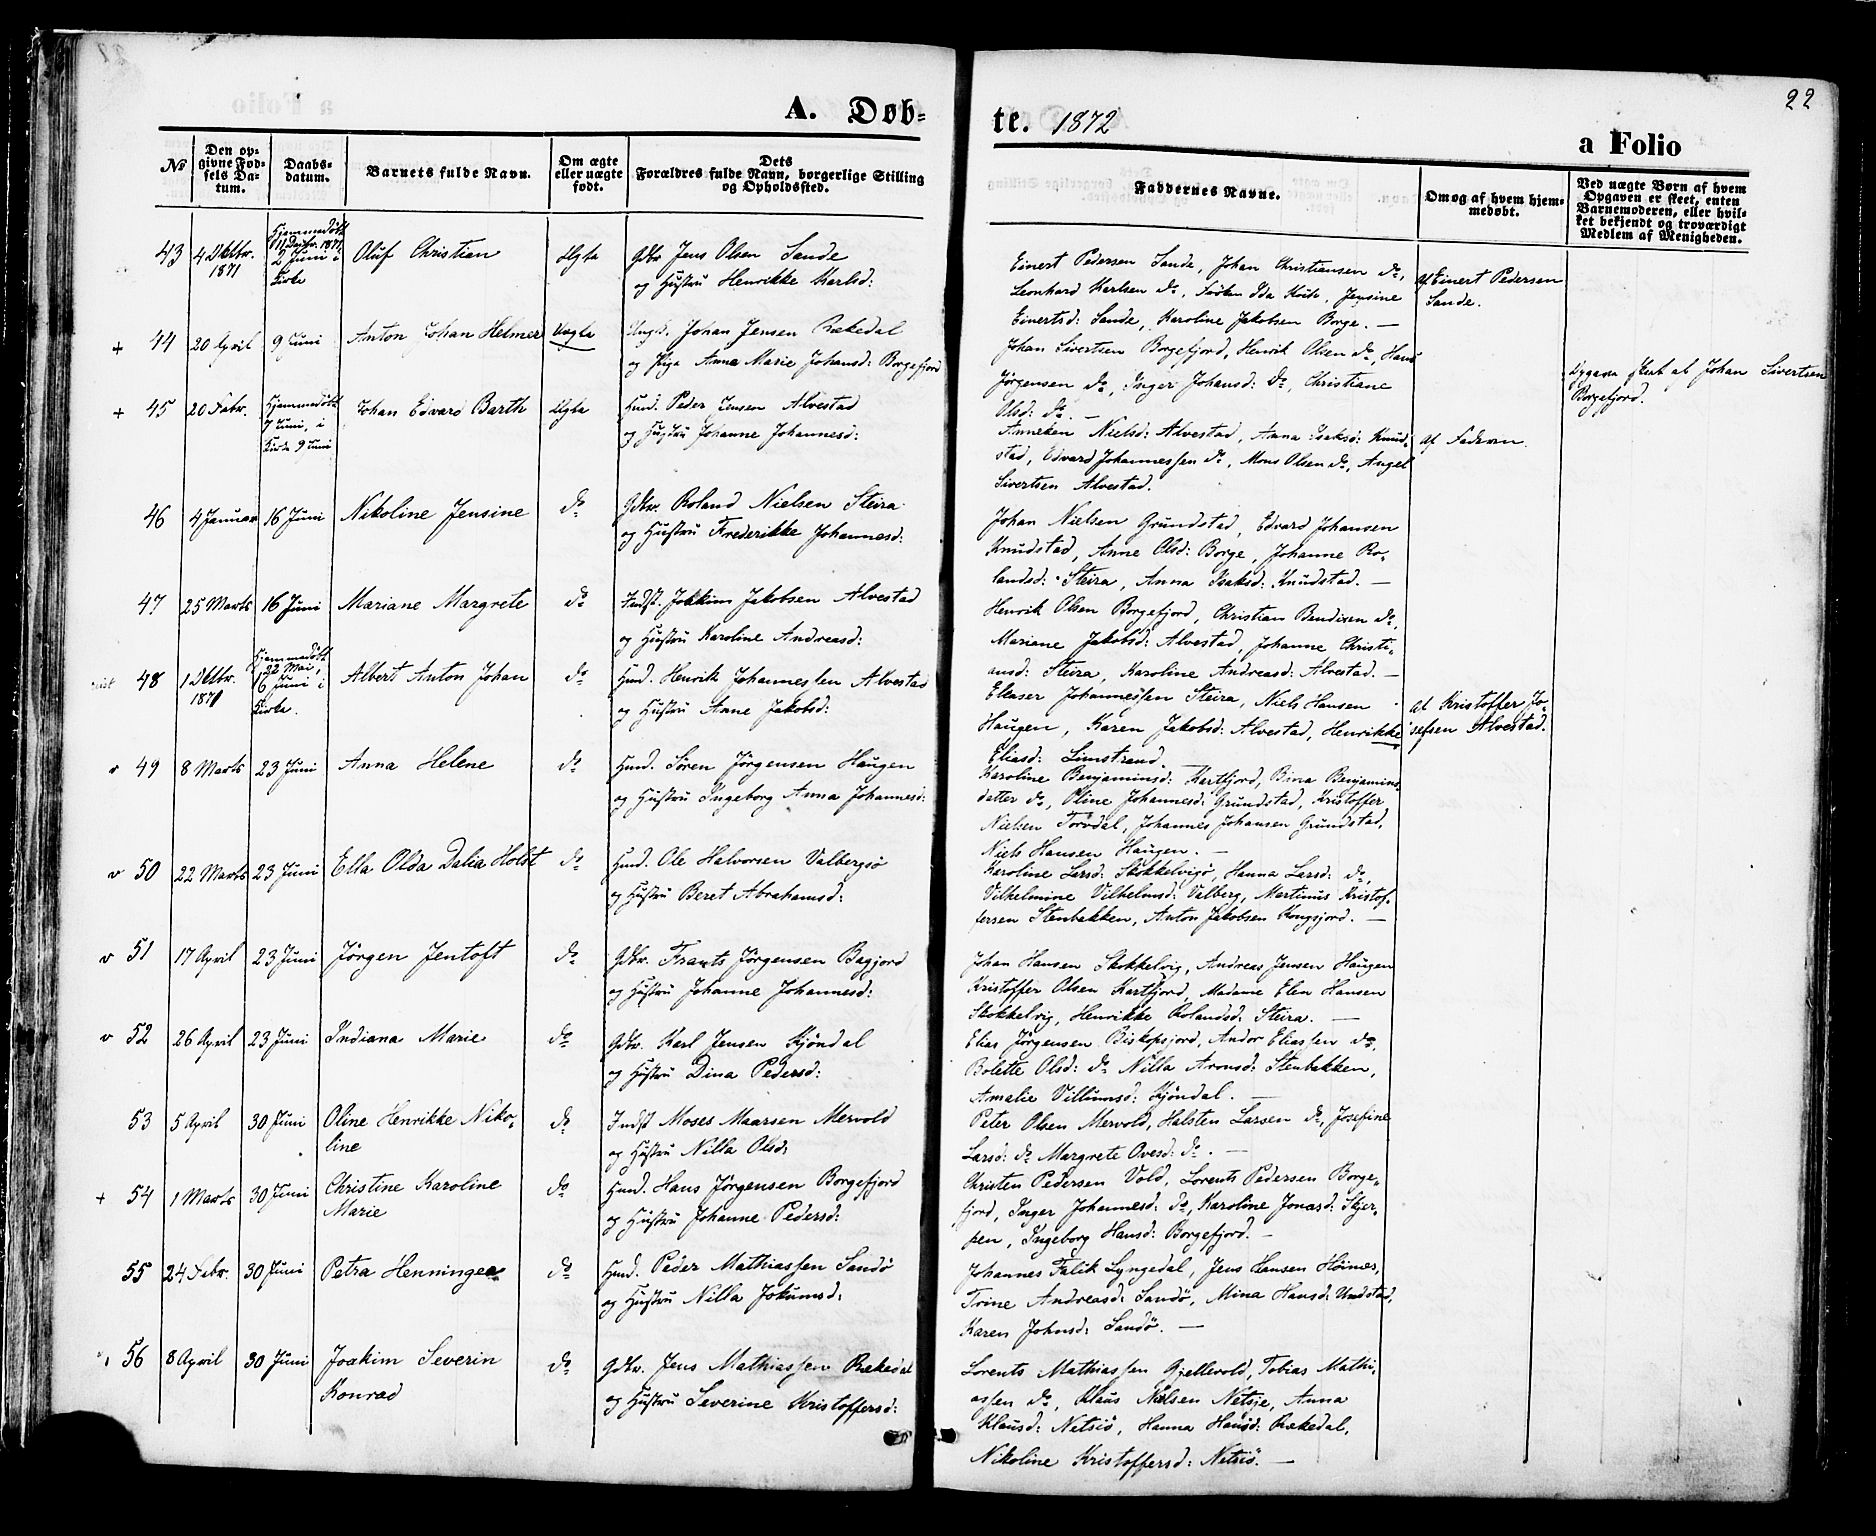 22
A. Døb-
te. 1872
a Folio
№
Den op-
givne Fød-
sels Da-
tum.
Daabs-
datum.
Barnets fulde Navn.
Om ægte
eller uægte
født.
Dets
Forældres fulde Navn, borgerlige Stilling
og Opholdssted.
Faddernes Navne.
Om og af hvem hjem-
medøbt.
Ved uægte Børn af hvem
Opgaven er skeet, enten
Barnemoderen, eller hvil-
ket bekjendt og troværdigt
Medlem af Menigheden.
43 4 Oktbr. 1871
Hjemmedøbt
2 Juni i
Kirke
Oluf Christian
Ægte
Gdbr Jens Olsen Sande
og Hustru Henrikke Karlsd:
Einert Pedersen Sande, Johan Christiansen do,
Leonhard Karlsen do, Frøken Ida Koch, Jensine
Einertsd: Sande, Karoline Jakobsen Borge. —
af Einert Pedersen
Sande.
+ 44 20 April 9 Juni Anton Johan Helmer Uægte
Ungk. Johan Jensen Rekedal
og Pige Anna Marie Johansd: Borgefjord
Johan Sivertsen Borgefjord, Henrik Olsen do, Hans
Jörgensen do, Inger Johansd: do, Christiane
Olsd: do. —
Opgaven skeet af Johan Sivertsen
Borgefjord.
+ 45 20 Febr.
Hjemmedøbt
7 Juni, i
Kirke 9 Juni
Johan Edvard Barth Ægte
Husd. Peder Jensen Alvestad
og Hustru Johanne Johannesd:
Anneken Nielsd: Alvestad, Anna Isaksd: Knud-
stad, Edvard Johannessen do, Mons Olsen do, Angel
Sivertsen Alvestad.
af Faderen.
46 4 Januar 16 Juni Nikoline Jensine do
Gdbr. Roland Nielsen Steira
og Hustru Frederikke Johannesd:
Johan Nielsen Grundstad, Edvard Johansen
Knudstad, Anne Olsd: Borge, Johanne Ro-
landsd: Steira, Anna Isaksd: Knudstad. —
47 25 Marts 16 Juni Mariane Margrete do
Indst. Joakim Jakobsen Alvestad
og Hustru Karoline Andreasd:
Henrik Olsen Borgefjord, Christian Bendixen do,
Mariane Jakobsd: Alvestad, Johanne Christi-
ansd: Steira, Karoline Andreasd: Alvestad. —
48 1 Oktbr. 1871
Hjemmedøbt
22 Mai,
16 Juni i
Kirke.
Albert Anton Johan do
Husd. Henrik Johannessen Alvestad
og Hustru Anne Jakobsd:
Eleaser Johannessen Steira, Niels Hansen
Haugen, Karen Jakobsd: Alvestad, Henrikke
Eliasd: Limstrand. —
af Kristoffer Jo-
sefsen Alvestad.
v 49 8 Marts 23 Juni Anna Helene do
Husd. Sören Jörgensen Haugen
og Hustru Ingeborg Anna Johannesd:
Karoline Benjaminsd: Kartfjord, Bina Benjamins-
datter do, Oline Johannesd: Grundstad, Kristoffer
Nielsen Torvdal, Johannes Johansen Grundstad,
Niels Hansen Haugen. —
v 50 22 Marts 23 Juni Ella Olda Dalia Holst do
Husd. Ole Halvorsen Valbergsö
og Hustru Beret Abrahamsd:
Karoline Larsd: Skokkelvigö, Hanna Larsd: do,
Vilhelmine Vilhelmsd: Valberg, Martinus Kristof-
fersen Stenbakken, Anton Jakobsen Kongsjord. —
v 51 17 April 23 Juni Jörgen Jentoft do
Gdbr. Frants Jörgensen Bagjord
og Hustru Johanne Johannesd:
Johan Hansen Skokkelvig, Andreas Jensen Haugen
Kristoffer Olsen Kartfjord, Madame Elen Hansen
Skokkelvig, Henrikke Rolandsd: Steira. —
v 52 26 April 23 Juni Indiana Marie do
Gdbr. Karl Jensen Kjöndal
og Hustru Dina Pedersd:
Elias Jörgensen Biskopsjord, Andor Eliassen do,
Bolette Olsd: do Nilla Aronsd: Stenbakken,
Amalie Villumsd: Kjöndal. —
53 5 April 30 Juni Oline Henrikke Niko-
line do
Indst Moses Maarsen Mervold
og Hustru Nilla Olsd:
Peter Olsen Mervold, Halsten Larsen do, Josefine
Larsd: do Margrete Ovesd: do. —
+ 54 1 Marts 30 Juni Christine Karoline
Marie do
Husd. Hans Jörgensen Borgefjord
og Hustru Johanne Pedersd:
Christen Pedersen Vold, Lorents Pedersen Borge-
fjord, Inger Johannesd: do, Karoline Jonasd: Skjer-
pen, Ingeborg Hansd: Borgefjord. —
55 24 Febr. 30 Juni Petra Henningea do
Husd. Peder Mathiassen Sandö
og Hustru Nilla Jokumsd:
Johannes Falik Lyngedal, Jens Hansen Höines,
Trine Andreasd: Sandö, Mina Hansd: Undstad,
Karen Johnsd: Sandö. —
56 8 April 30 Juni Joakim Severin
Konrad do
Gdbr. Jens Mathiassen Rekedal
og Hustru Severine Kristoffersd:
Lorents Mathiassen Gjellevold, Tobias Mathi-
assen do, Klaus Nielsen Netsje, Anna
Klausd: Netsiö, Hanna Hansd: Rekedal,
Nikoline Kristoffersd: Netsiö. —